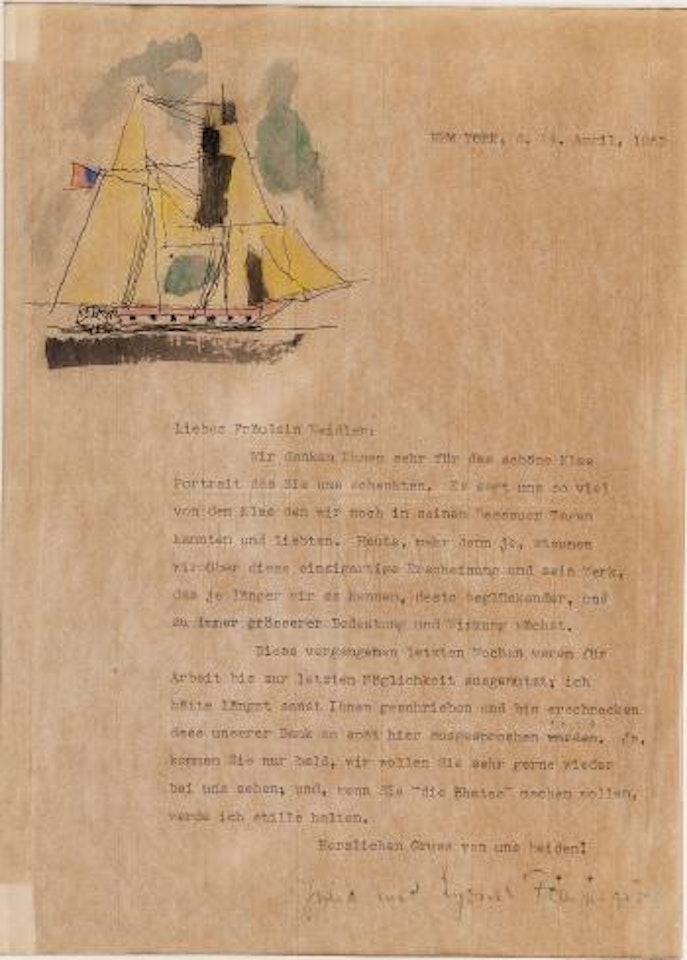 NEW YORK, April,
Liebes Fräulein
Wir danken Ihnen sehr für das schöne Klee
Portrait das Sie uns schenkten. Es sagt uns so viel
von dem Klee den wir noch in seinen Dessauer Tagen
kannten und liebten. Heute, mehr denn je, staunen
wir über diese einzigartige Erscheinung und sein Werk,
das je länger wir es kennen, desto beglückender, und
zu immer grösserer Bedeutung und Wirkung wächst.
Diese vergangenen letzten Wochen waren für
Arbeit bis zur letzten Möglichkeit ausgenutzt; ich
hätte längst sonst Ihnen geschrieben und bin erschrocken
dass unserer Dank so spät hier ausgesprochen Ja,
kommen Sie nur bald, wir wollen Sie sehr gerne wieder
bei uns sehen; und, wenn Sie "die Photos" machen wollen,
werde ich stille halten.
Herzlichen Gruss von uns beiden!
und Lyonel Feininger